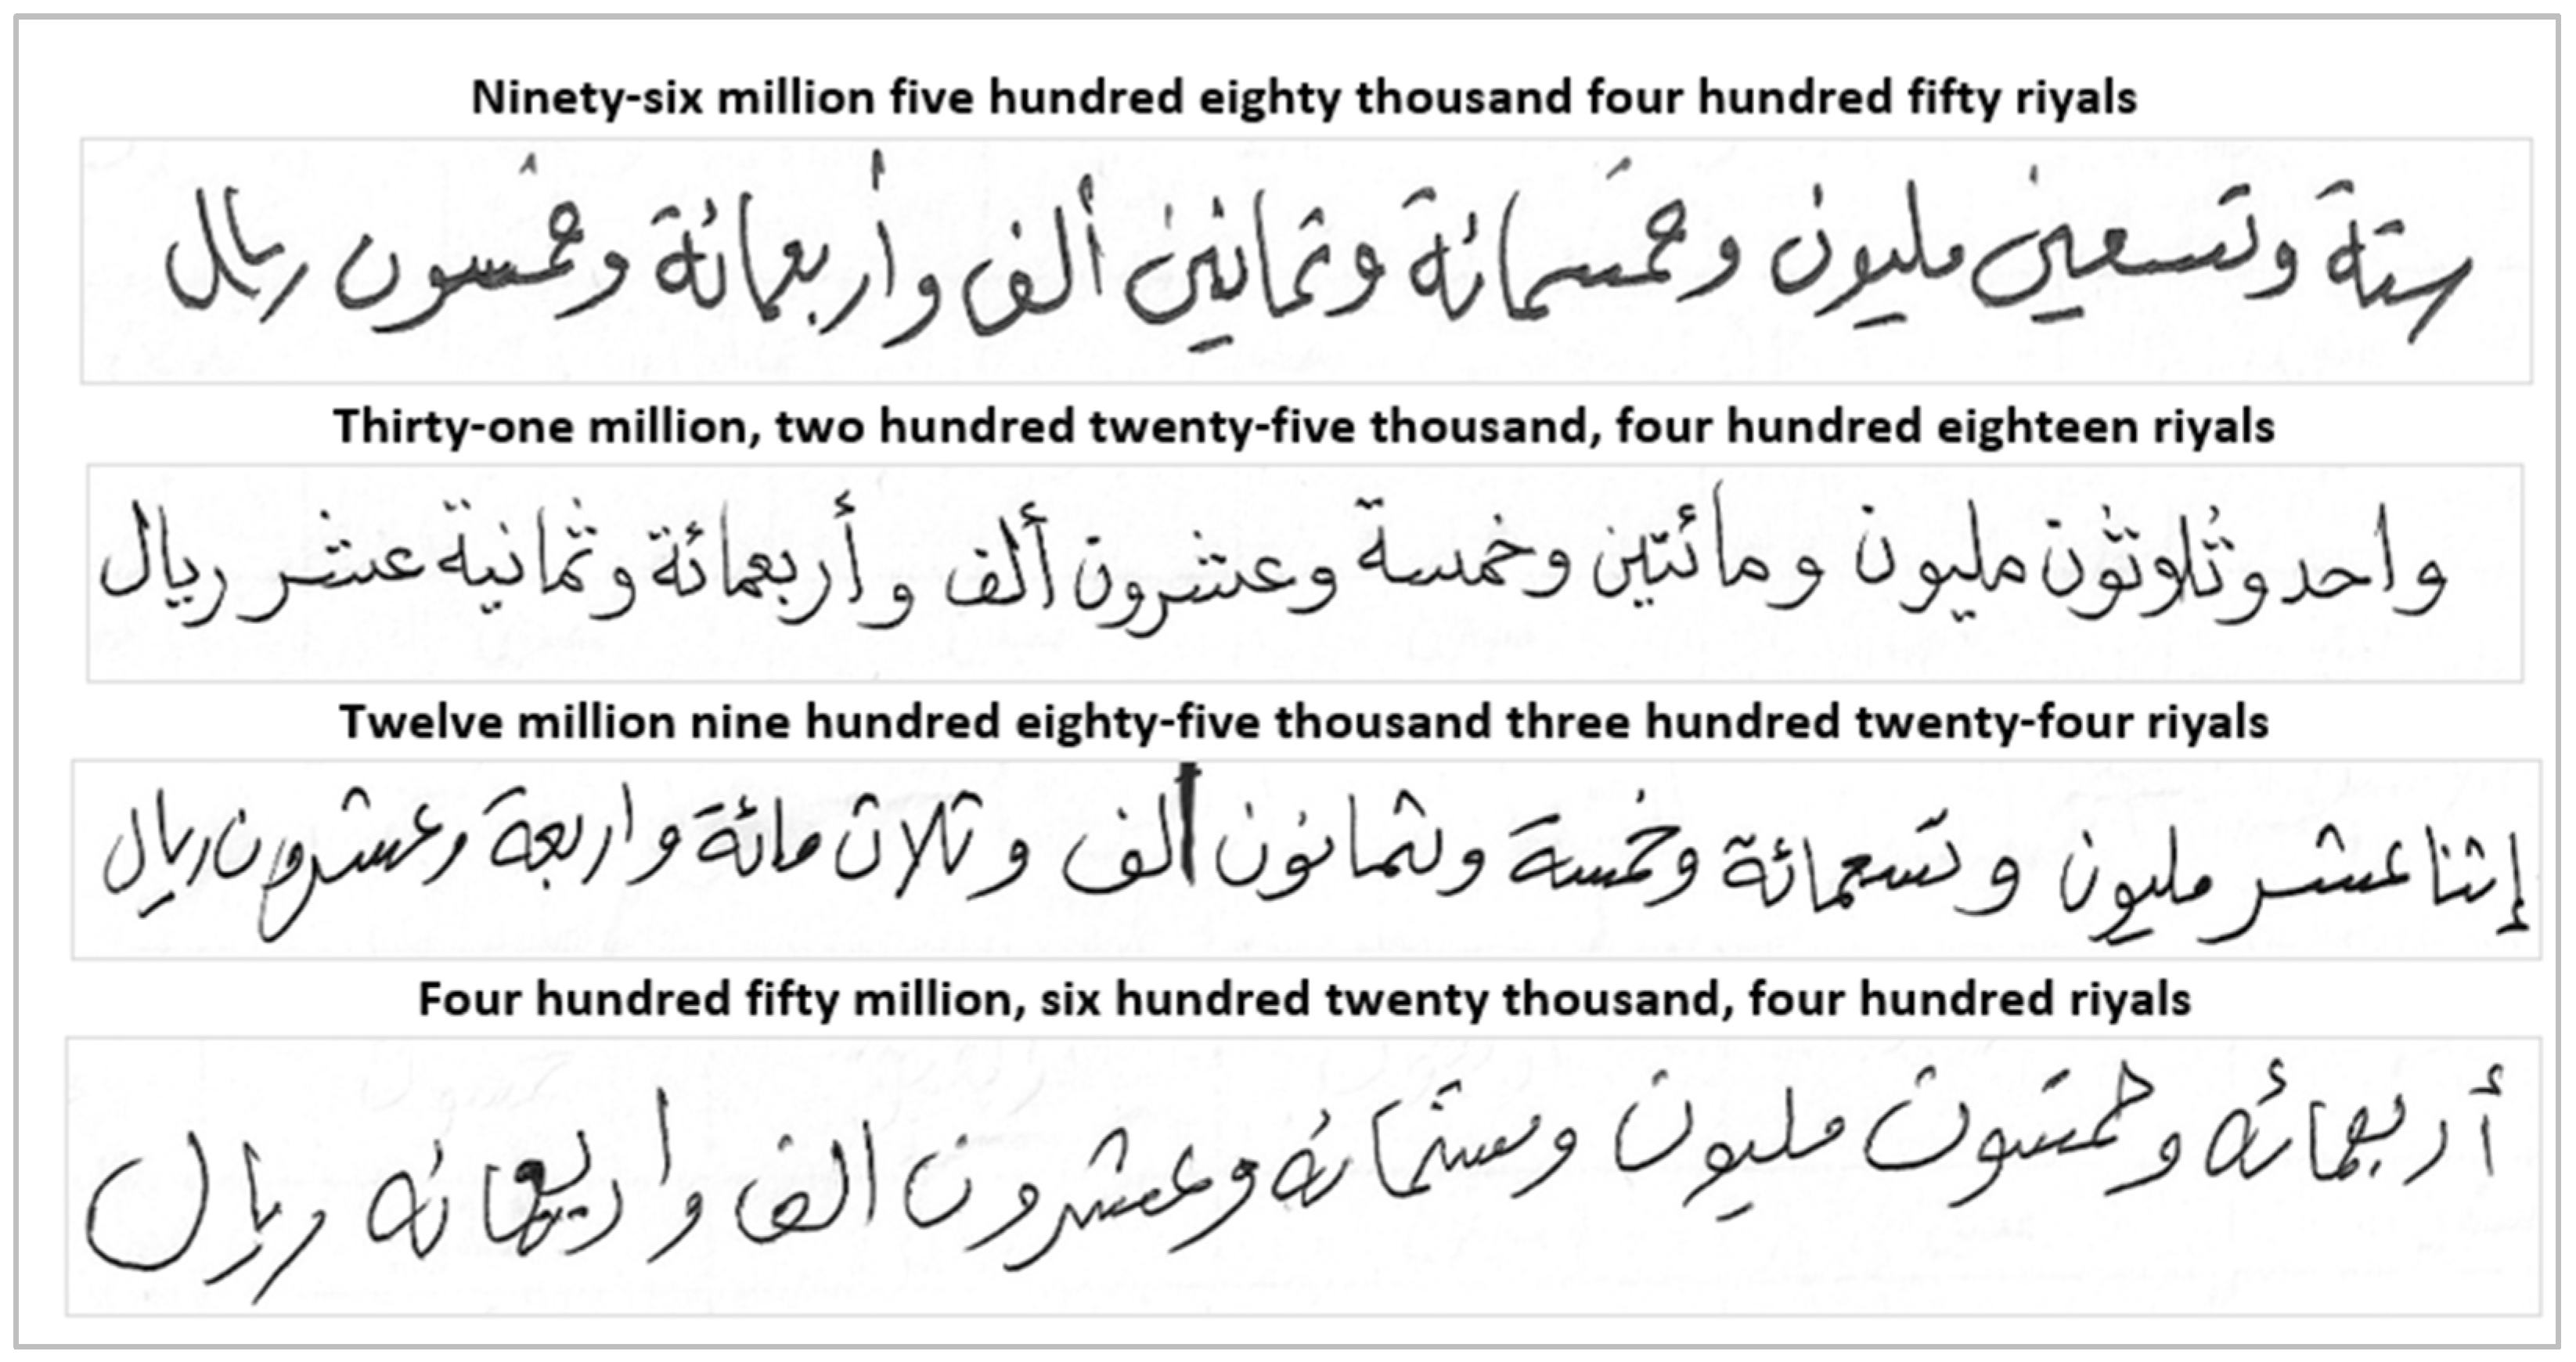 Ninety-six million five hundred eighty thousand four hundred fifty riyals
ستة وتسعين مليون وخمسمائة وثمانين ألف وأربعمائة وخمسون ريال
Thirty-one million, two hundred twenty-five thousand, four hundred eighteen riyals
واحد وثلاوثون مليون ومائتين وخمسة وعشرون ألف وأربعمائة وثمانية عشر ريال
Twelve million nine hundred eighty-five thousand three hundred twenty-four riyals
إثنا عشر مليون وتسعمائة وخمسة وثمانون ألف وثلاث مائة واربعة وعشرون ريال
Four hundred fifty million, six hundred twenty thousand, four hundred riyals
أربعمائه وخمسون مليون وستمائه وعشرون الف واربعمائه ريال